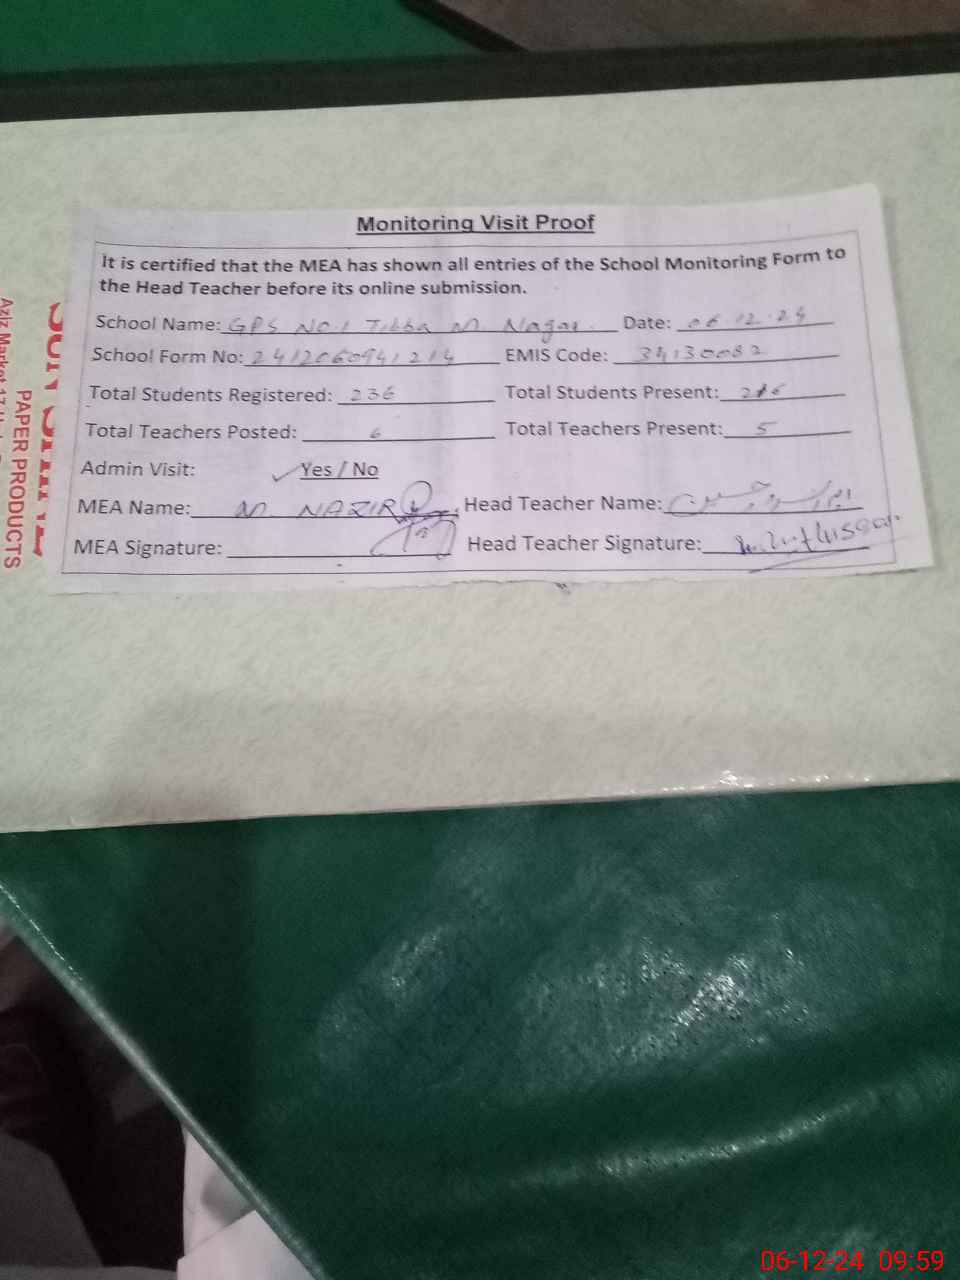 Monitoring Visit Proof
It is certified that the MEA has shown all entries of the School Monitoring Form to
the Head Teacher before its online submission.
School Name: GPS No.1 Tibba M. Nagar. Date: 06.12.24
School Form No: 2412060941214 EMIS Code: 34130082
Total Students Registered: 236 Total Students Present:
Total Teachers Posted: 6 Total Teachers Present: 5
Admin Visit: ✓ Yes / No
MEA Name: M NAZIR Head Teacher Name:
MEA Signature: Head Teacher Signature: Hussain
PAPER PRODUCTS
Aziz Market 17
06-12-24 09:59